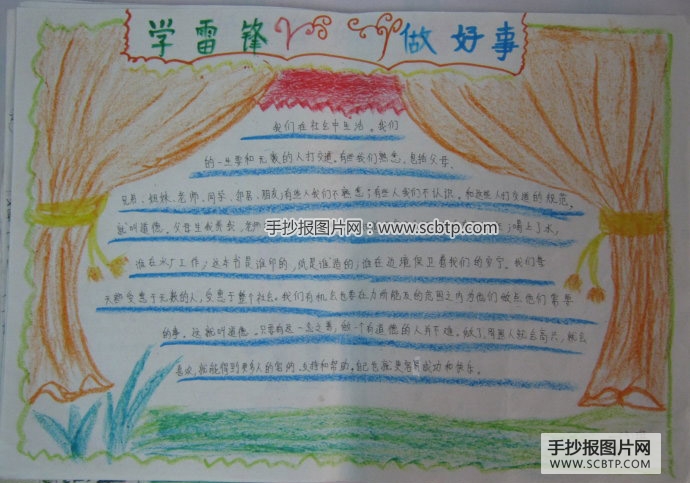 学雷锋 做好事
我们在社会中生活。我们
的一生要和无数的人打交道。有些我们熟悉，包括父母、
兄弟、姐妹、老师、同学、邻居、朋友；有些人我们不熟悉；有些人我们不认识。和这些人打交道的规范，
就叫道德。父母生我养我，老师 喝上了水，
手抄报图片网：www.scbtp.com
谁在水厂工作；这本书是谁印的，纸是谁造的；谁在边境保卫着我们的安宁。我们每
天都受惠于无数的人，受惠于整个社会。我们有机会也要在力所能及的范围之内为他们做点他们需要
的事。这就叫道德。只要有这一点之善，做一个有道德的人并不难。做了，周围人就会高兴，就会
喜欢，就能得到更多人的 支持和帮助。自己也就更容易成功和快乐。
手抄报图片网
WWW.SCBTP.COM